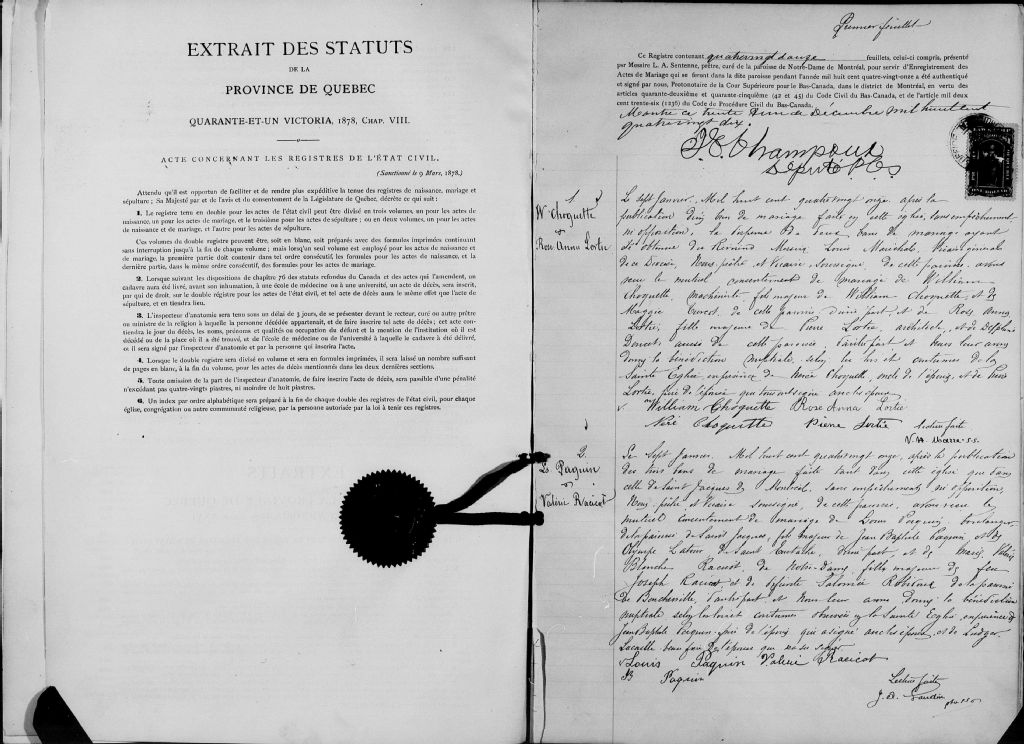 EXTRAIT DES STATUTS
DE LA
PROVINCE DE QUEBEC
QUARANTE-ET-UN VICTORIA, 1878, CHAP. VIII.
ACTE CONCERNANT LES REGISTRES DE L'ÉTAT CIVIL.
(Sanctionné le 9 Mars, 1878.)
Attendu qu'il est opportun de faciliter et de rendre plus expéditive la tenue des registres de naissance, mariage et
sépulture ; Sa Majesté par et de l'avis et du consentement de la Législature de Québec, décrète ce qui suit :
1. Le registre tenu en double pour les actes de l'état civil peut être divisé en trois volumes, un pour les actes de
naissance, un pour les actes de mariage, et le troisième pour les actes de sépulture ; ou en deux volumes, un pour les actes
de naissance et de mariage, et l'autre pour les actes de sépulture.
Ces volumes du double registre peuvent être, soit en blanc, soit préparés avec des formules imprimées continuant
sans interruption jusqu'à la fin de chaque volume ; mais lorsqu'un seul volume est employé pour les actes de naissance et
de mariage, la première partie doit contenir dans tel ordre consécutif, les formules pour les actes de naissance, et la
dernière partie, dans le même ordre consécutif, des formules pour les actes de mariage.
2. Lorsque suivant les dispositions de chapitre 76 des statuts refondus du Canada et des actes qui l'amendent, un
cadavre aura été livré, avant son inhumation, à une école de médecine ou à une université, un acte de décès, sera inscrit,
par qui de droit, sur le double registre pour les actes de l'état civil, et tel acte de décès aura le même effet que l'acte de
sépulture, et en tiendra lieu.
3. L'inspecteur d'anatomie sera tenu sous un délai de 3 jours, de se présenter devant le recteur, curé ou autre prêtre
ou ministre de la religion à laquelle la personne décédée appartenait, et de faire inscrire tel acte de décès ; cet acte con-
tiendra le jour du décès, les noms, prénoms et qualités ou occupation du défunt et la mention de l'institution où il est
décédé ou de la place où il a été trouvé, et de l'école de médecine ou de l'université à laquelle le cadavre à été délivré,
et il sera signé par l'inspecteur d'anatomie et par la personne qui inscrira l'acte.
4. Lorsque le double registre sera divisé en volume et sera en formules imprimées, il sera laissé un nombre suffisant
de pages en blanc, à la fin du volume, pour les actes de décès mentionnés dans les deux dernières sections.
5. Toute omission de la part de l'inspecteur d'anatomie, de faire inscrire l'acte de décès, sera passible d'une pénalité
n'excédant pas quatre-vingts piastres, ni moindre de huit piastres.
6. Un index par ordre alphabétique sera préparé à la fin de chaque double des registres de l'état civil, pour chaque
église, congrégation ou autre communauté religieuse, par la personne autorisée par la loi à tenir ces registres.
Premier feuillet
Ce Registre contenant quatrevingtdouze feuillets, celui-ci compris, présenté
par Messire L. A. Sentenne, prêtre, curé de la paroisse de Notre-Dame de Montréal, pour servir d'Enregistrement des
Actes de Mariage qui se feront dans la dite paroisse pendant l'année mil huit cent quatre-vingt-onze a été authentiqué
et signé par nous, Protonotaire de la Cour Supérieure pour le Bas-Canada, dans le district de Montréal, en vertu des
articles quarante-deuxième et quarante-cinquième (42 et 45) du Code Civil du Bas-Canada, et de l'article mil deux
cent trente-six (1236) du Code de Procédure Civil du Bas-Canada.
ce trente Décembre mil huit cent
quatrevingt dix.
Député P.C.S.
1
Wm Choquette
&
Rose Anna Lortie
Le sept Janvier, Mil huit cent quatrevingt onze, après la
publication d'un ban de mariage faite en cette église, sans empêchement
ni opposition, la dispense de deux bans de mariage ayant
été obtenue du Révérend Messire Louis Maréchal, Vicaire général
de ce Diocèse, Nous prêtre et Vicaire soussigné, de cette paroisse, avons
reçu le mutuel consentement de mariage de William
Choquette, machiniste, fils majeur de William Choquette et de
Maggie de cette paroisse d'une part, et de Rose Anna
Lortie, fille majeure de Pierre Lortie architecte, et de Delphine
Doucet, aussi de cette paroisse, d'autre part et nous leur avons
donné la bénédiction nuptiale, selon les lois et coutumes de la
Sainte Eglise en présence de Nérée Choquette, oncle de l'époux, et de Pierre
Lortie, père de l'épouse qui tous ont signé avec les époux.
William Choquette Rose Anna Lortie
Néré Choquette Pierre Lortie lecture faite
2.
L. Paquin
&
Valérie Racicot
Le sept Janvier, Mil huit cent quatrevingt onze, après la publication
des trois bans de mariage faite tant dans cette église que dans
celle de Saint Jacques de Montréal, sans empêchement ni opposition,
Nous prêtre et Vicaire soussigné, de cette paroisse, avons reçu le
mutuel consentement de mariage de Louis Paquin, boulanger,
de la paroisse de Saint Jacques, fils majeur de Jean Baptiste Paquin et de
Olympe de Saint Eustache, d'une part, et de Marie Valérie
Blanche Racicot, de Notre-Dame, fille majeure de feu
Joseph Racicot et de défunte Salomée de la paroisse
de Boucherville, d'autre part et nous leur avons donné la bénédiction
nuptiale selon les lois et coutumes observées en la Sainte Eglise, en présence de
Jean Baptiste Paquin père de l'époux qui a signé avec les époux, et de Ludger
Lacaille beau frère de l'épouse qui n'a su signer.
Louis Paquin Valéri Racicot
JB Paquin
Lecture faite